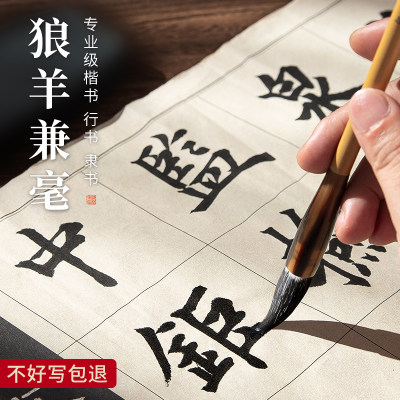 狼羊兼毫
专业级楷书 行书 隶书
中
監
鉅
不好写包退